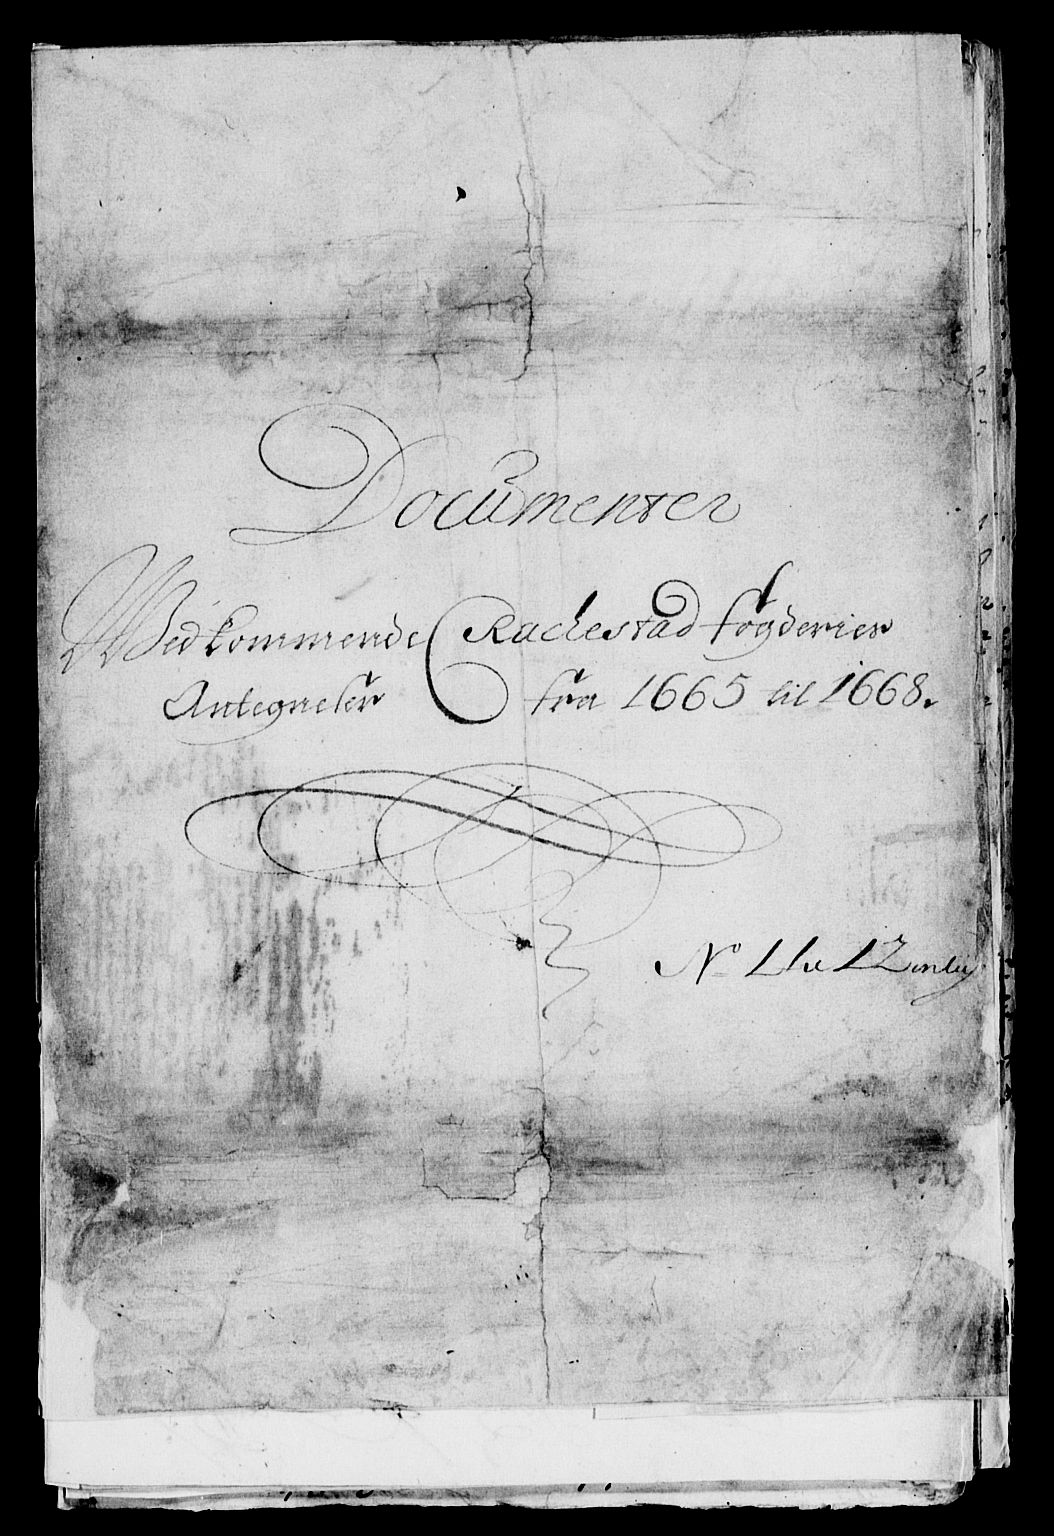 Documenter
Vedkommende Rachestad fogderies
Antegnelser fra 1665 til 1668.
No 1 til 12 inclus